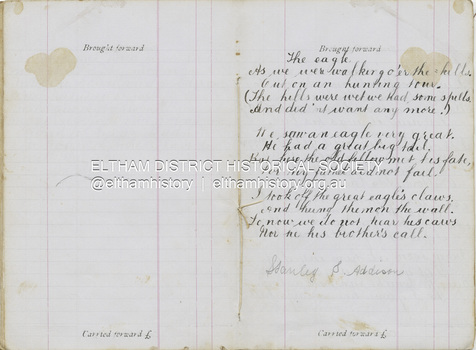 Brought forward
Brought forward
The eagle.
As we were walking o'er the hills
Out on an hunting tour.
(The hills were wet we had some spills
And did'nt want any more!)
We saw an eagle very great.
He had a great big tail.
the old fellow met his fate,
For my father did not fail.
ELTHAM DISTRICT HISTORICAL SOCIETY
@elthamhistory | elthamhistory.org.au
I took off the great eagle's claws,
And hung them on the wall.
So now we do not hear his caws
Nor he his brother's call.
Stanley S. Addison
Carried forward £
Carried forward £